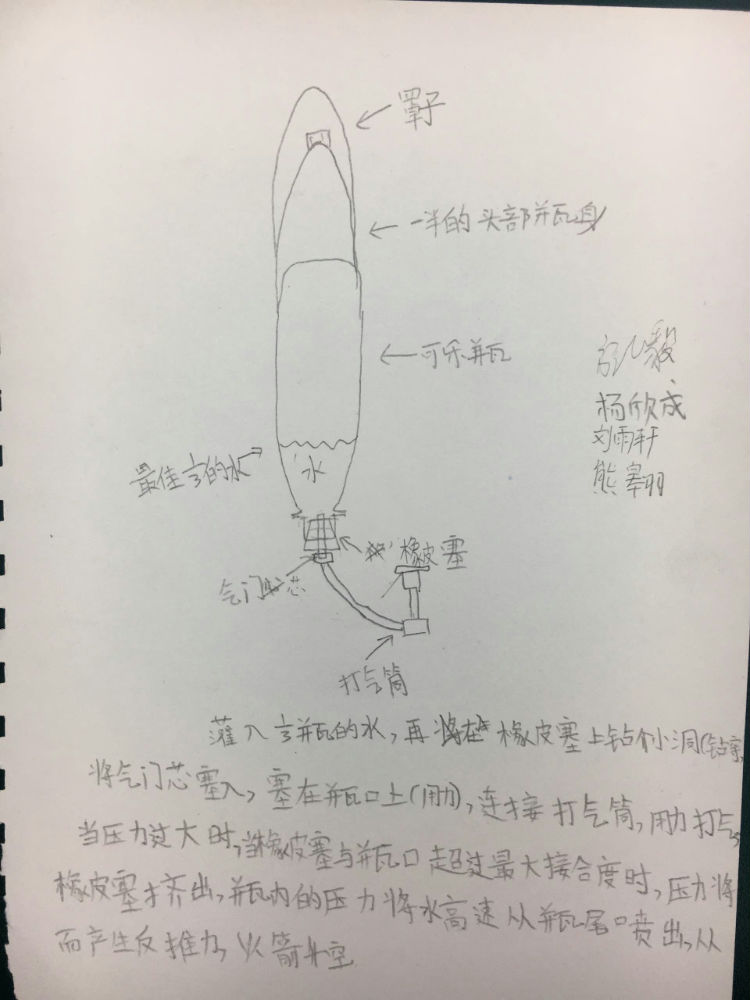 罩子
一半的头部瓶身
可乐瓶
毅
杨欣成
刘雨轩
熊翱
最佳⅓的水
水
橡皮塞
气门芯
打气筒
灌入⅓瓶的水,再在橡皮塞上钻个小洞(钻穿
将气门芯塞入,塞在瓶口上(用力),连接打气筒,用力打气,
当压力过大时,当橡皮塞与瓶口超过最大接合度时,压力将
橡皮塞挤出,瓶内的压力将水高速从瓶尾口喷出,从
而产生反推力,火箭升空